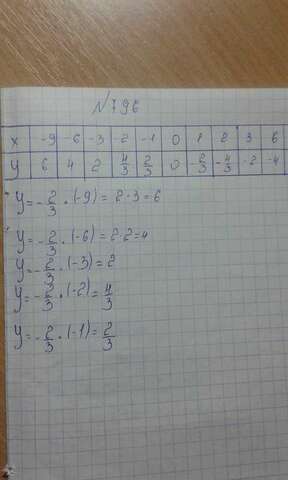 №796
x -9 -6 -3 -2 -1 0 1 2 3 6
y 6 4 2 4/3 2/3 0 -2/3 -4/3 -2 -4
y = -2/3 · (-9) = 2·3 = 6
y = -2/3 · (-6) = 2·2 = 4
y = -2/3 · (-3) = 2
y = -2/3 · (-2) = 4/3
y = -2/3 · (-1) = 2/3